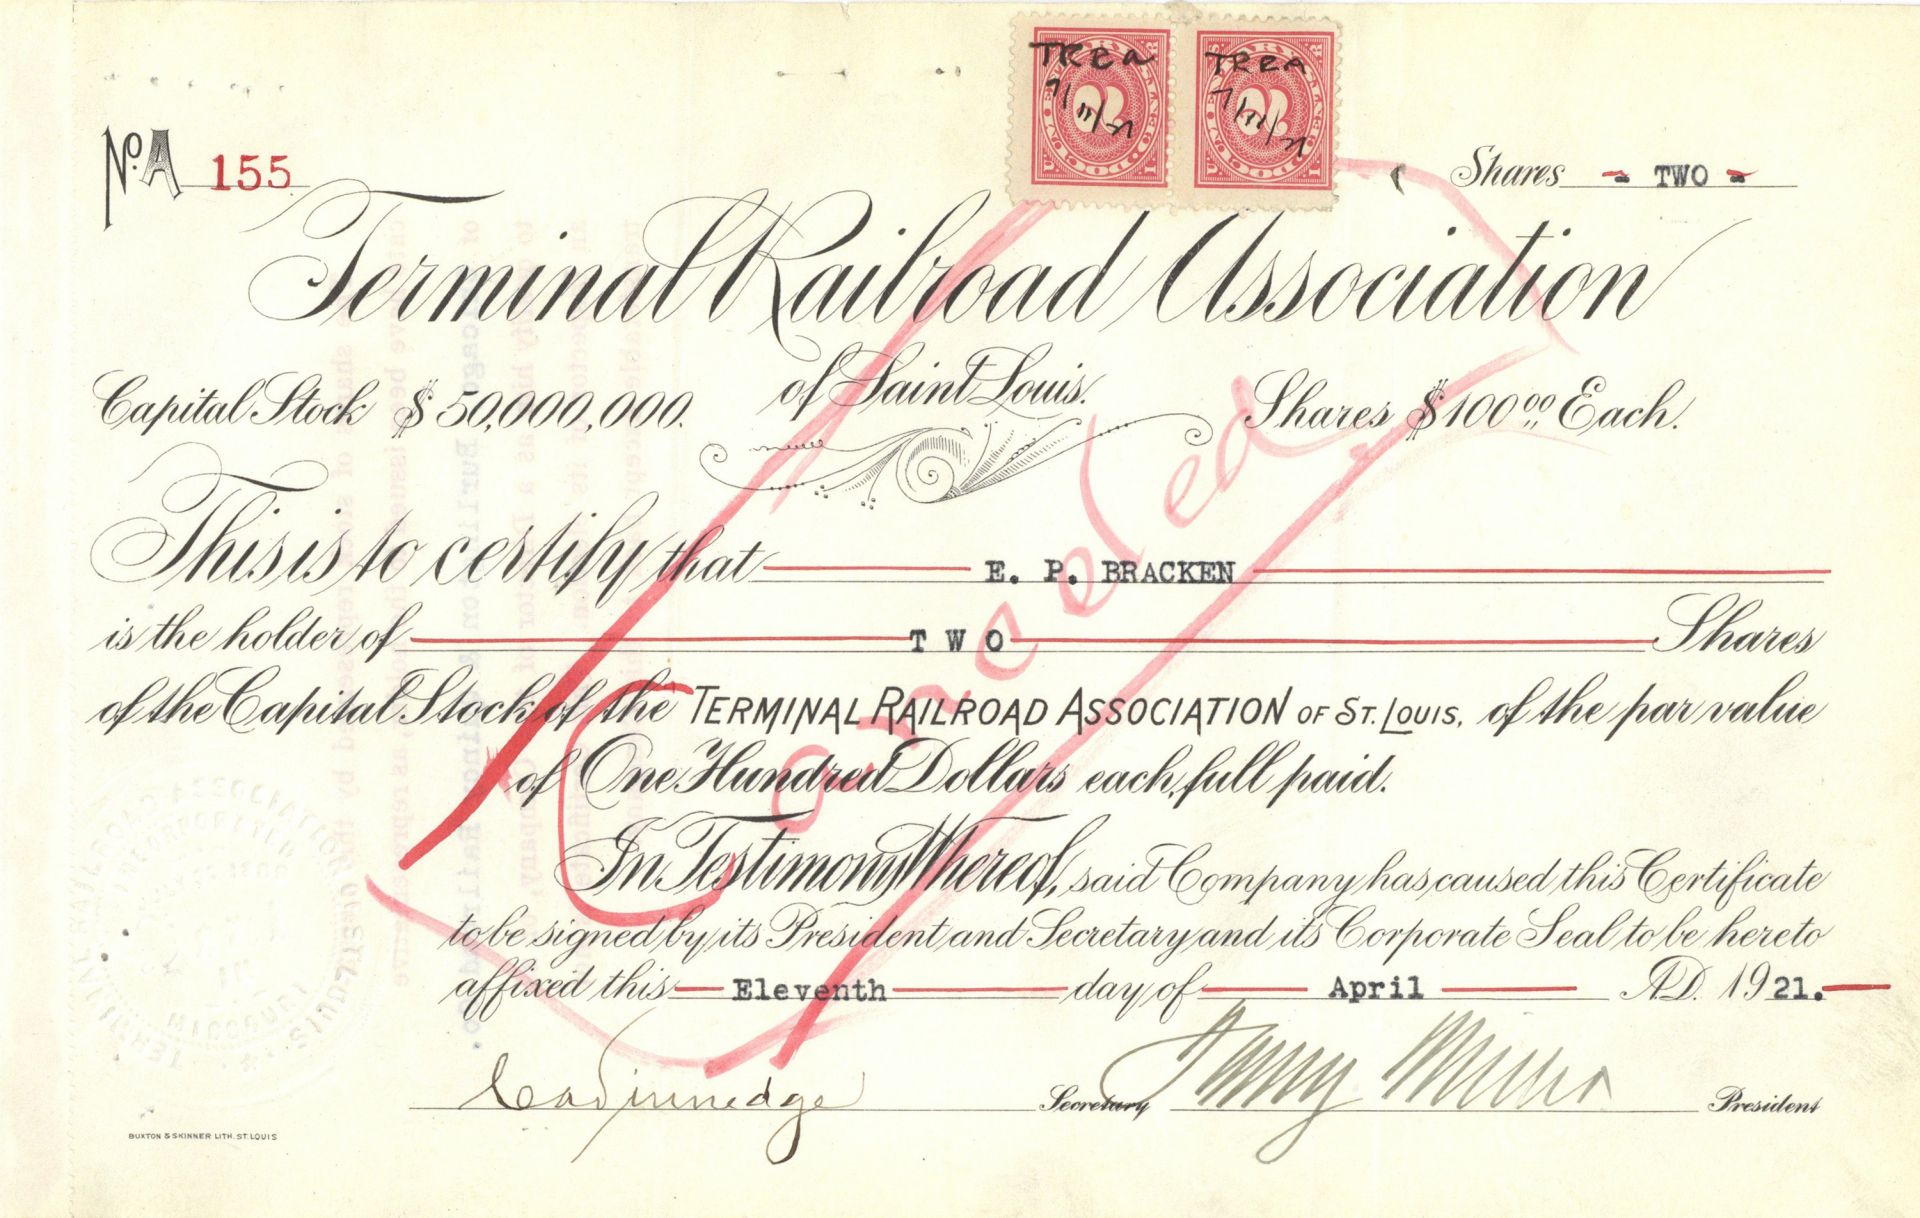 TRRA TRRA
No. A 155
Shares - TWO -
Terminal Railroad Association
of Saint Louis.
Capital Stock $50,000,000.
Shares $100.00 Each.
This is to certify that E. P. BRACKEN
is the holder of TWO Shares
of the Capital Stock of the TERMINAL RAILROAD ASSOCIATION OF ST. LOUIS, of the par value
of One Hundred Dollars each, full paid.
In Testimony Whereof, said Company has caused this Certificate
to be signed by its President and Secretary and its Corporate Seal to be hereto
affixed this Eleventh day of April A.D. 1921.
Secretary President
BUXTON & SKINNER LITH. ST. LOUIS
Canceled